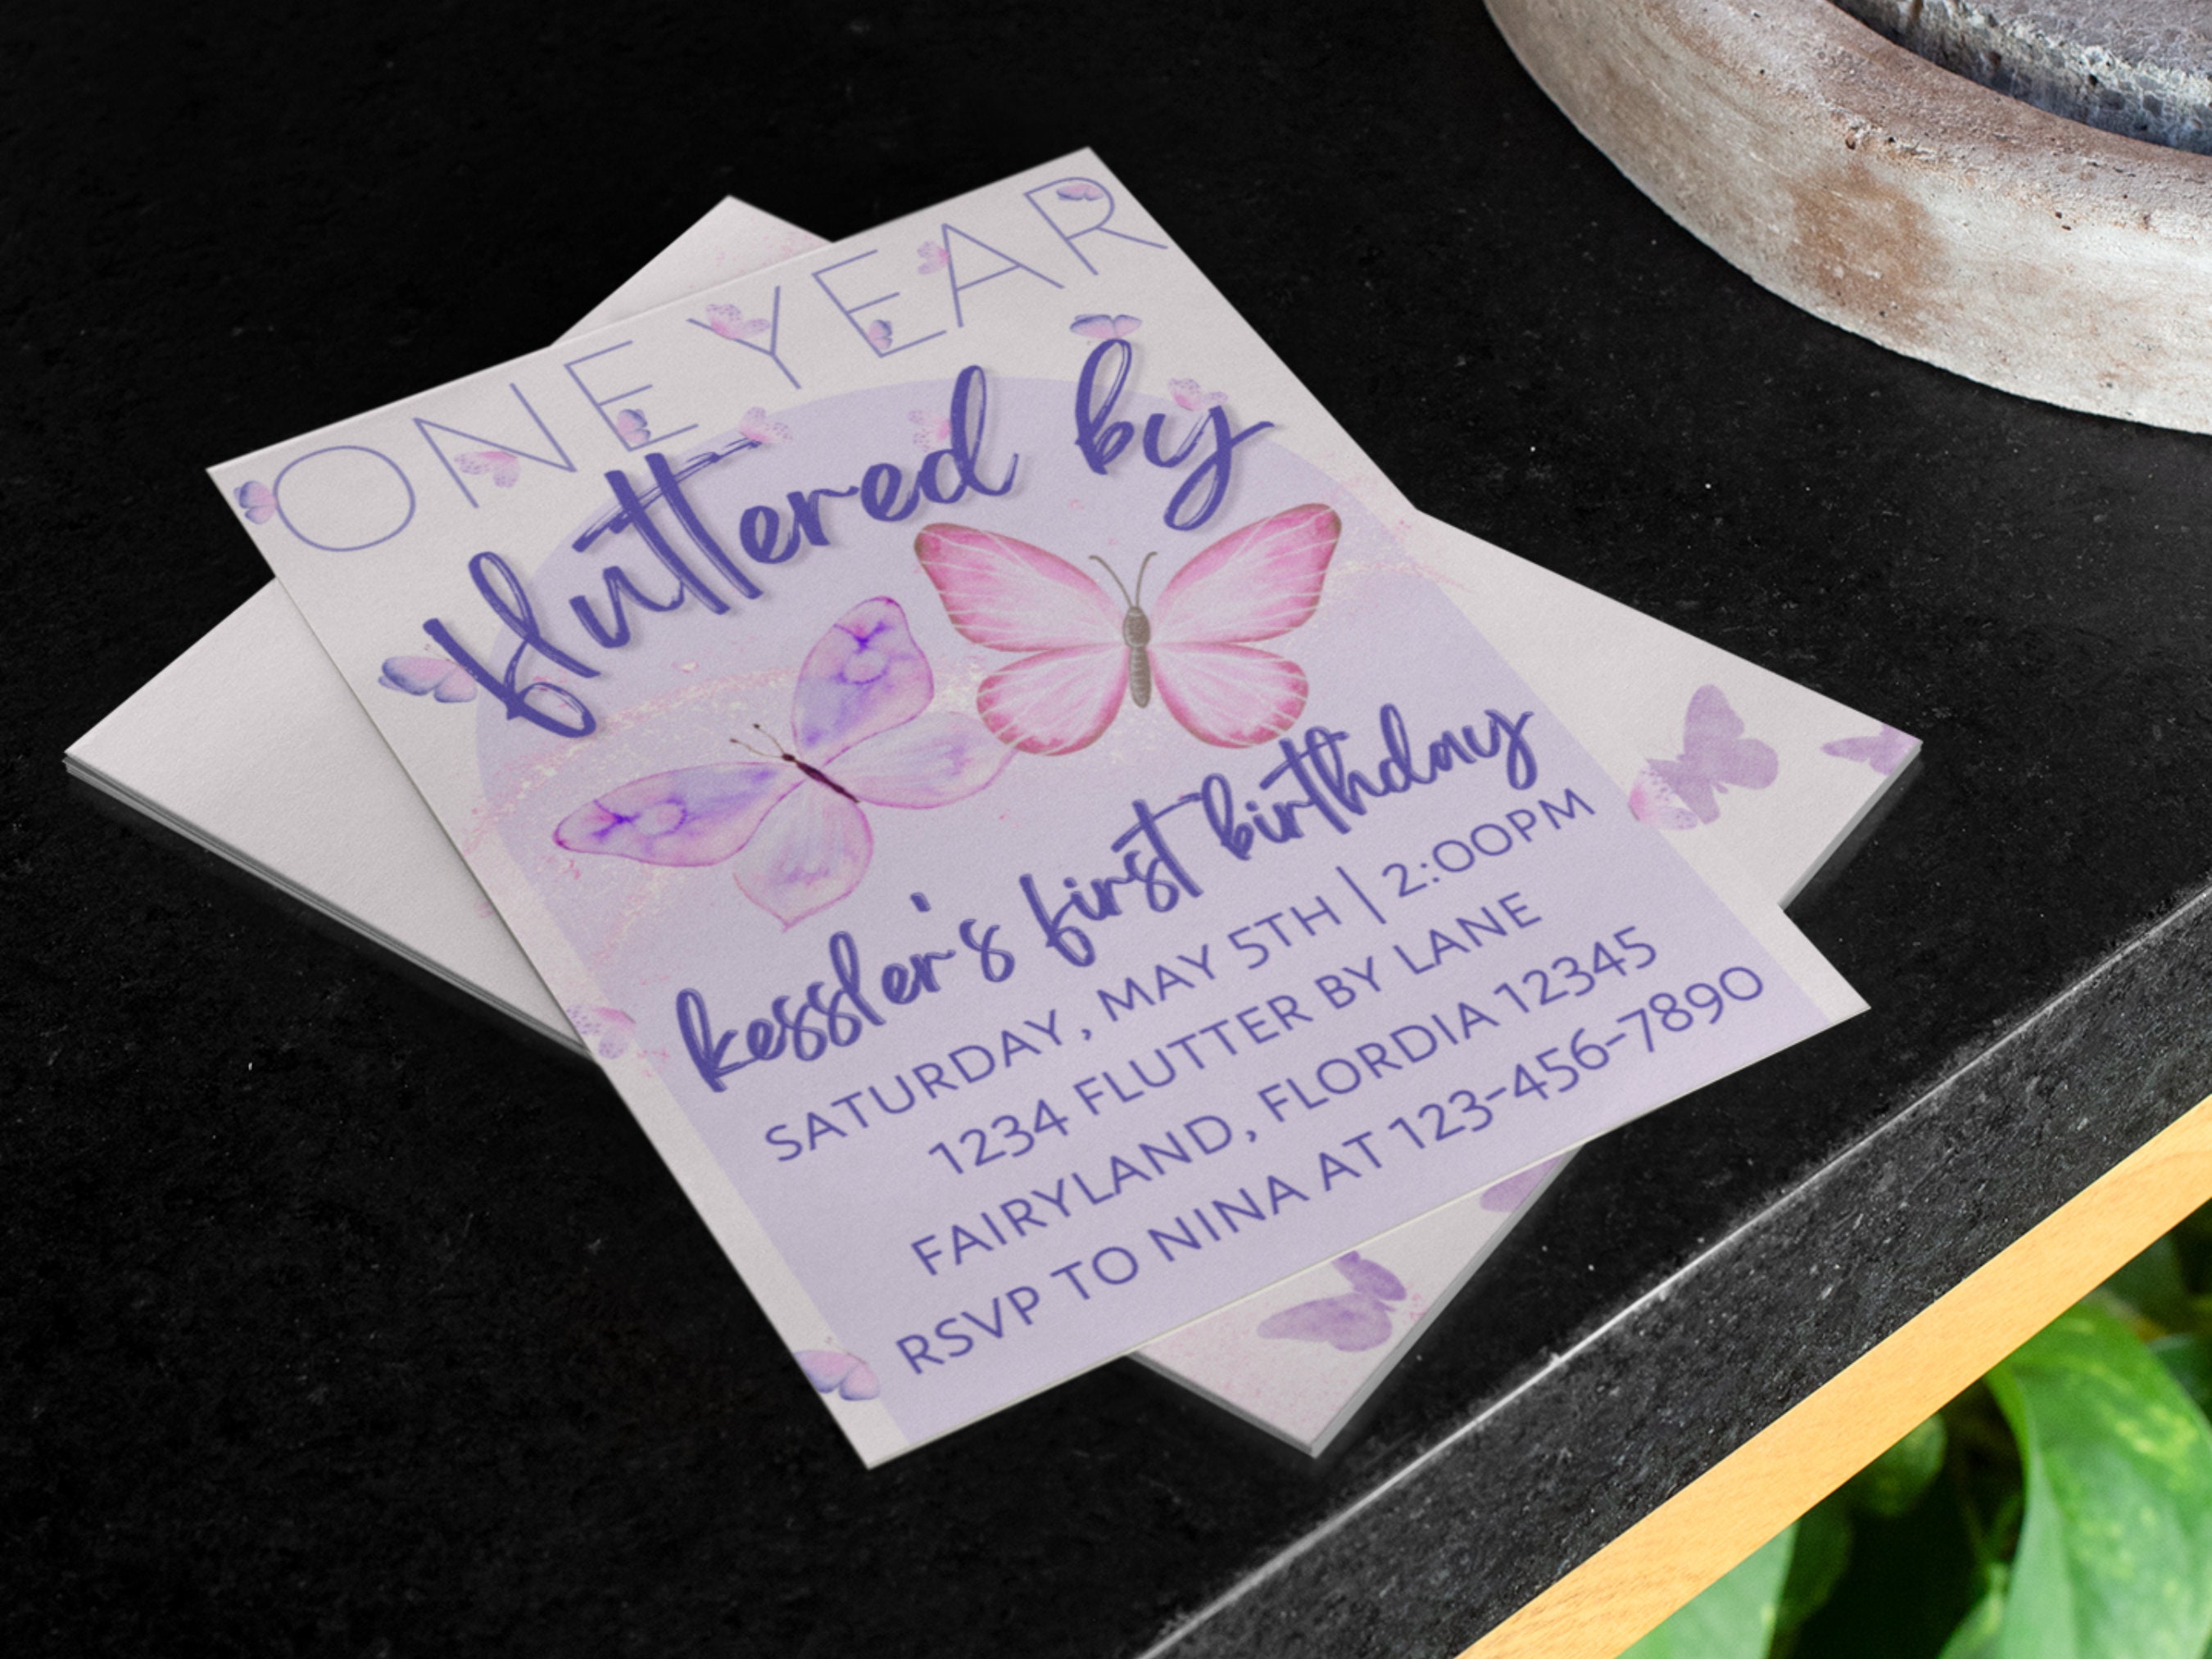 ONE YEAR
fluttered by
kessler's first birthday
SATURDAY, MAY 5TH | 2:00PM
1234 FLUTTER BY LANE
FAIRYLAND, FLORDIA 12345
RSVP TO NINA AT 123-456-7890